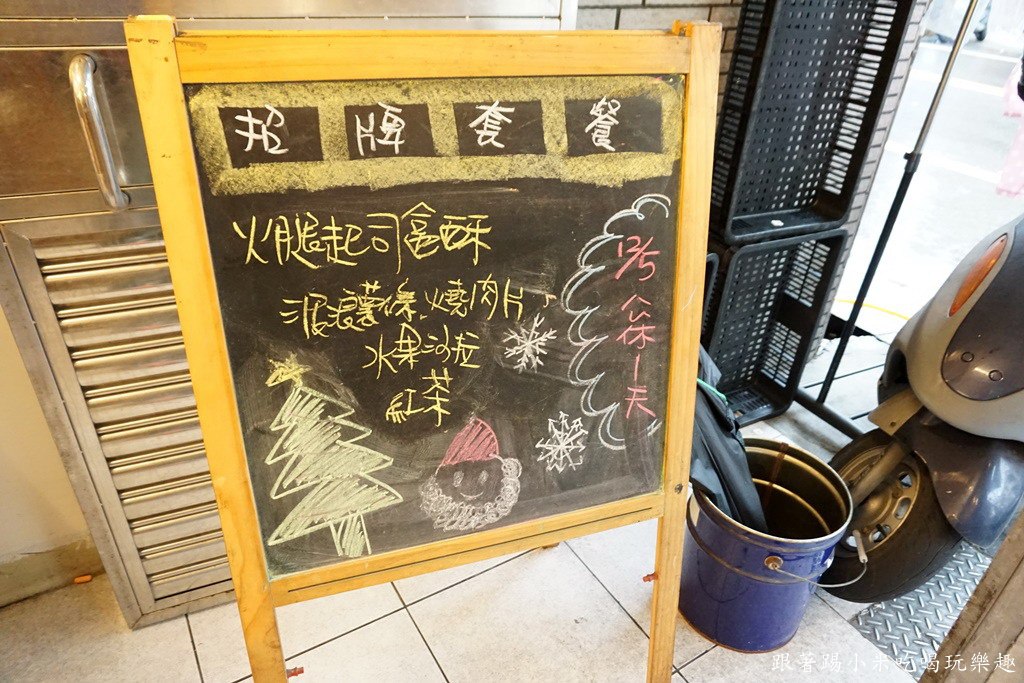 招牌套餐
火腿起司窩酥
波浪薯條.燒肉片
水果沙拉
紅茶
12/5
公休1天
跟著踢小米吃喝玩樂趣